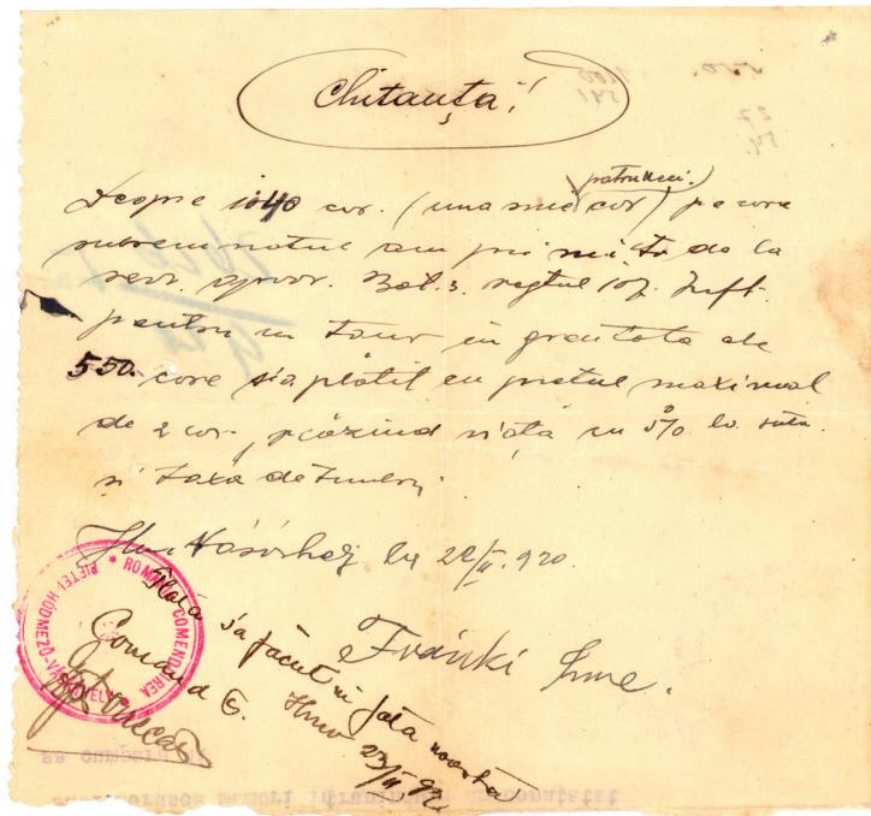 Chitanța!
Despre 1040 cor. (una mie patruzeci. cor) pe care
subsemnatul am primit de la
serv. aprov. Bat. 3. regtul 107. Inft.
pentru un taur in greutate de
550. care s'a plătit cu prețul maximal
de 2 cor., scăzînd 5% la sută.
și taxa de timbru.
Hm Vásárhely la 22/II. 920.
Fránki Imre.
Plata s'a făcut în fața noastră
Hmv 23/II 920
Comand C.
ROM. COMENDUIREA PIEȚEI HÓDMEZŐ-VÁSÁRHELY